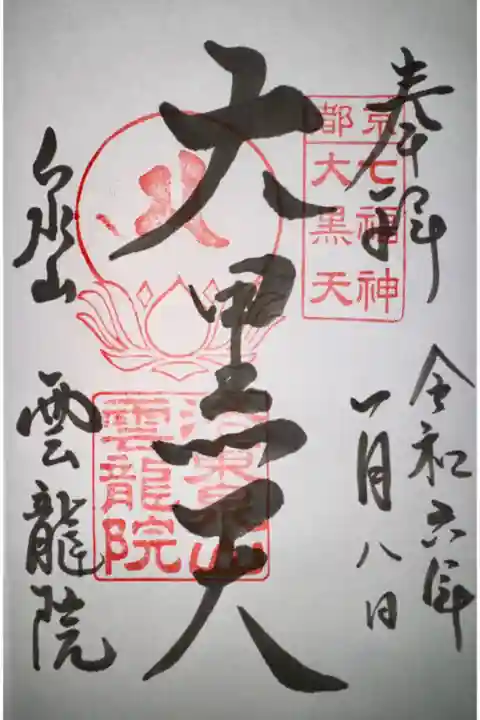 奉拝
令和六年
一月八日
京都
七福神
大黒天
大黒天
雲龍院
泉山
雲龍院